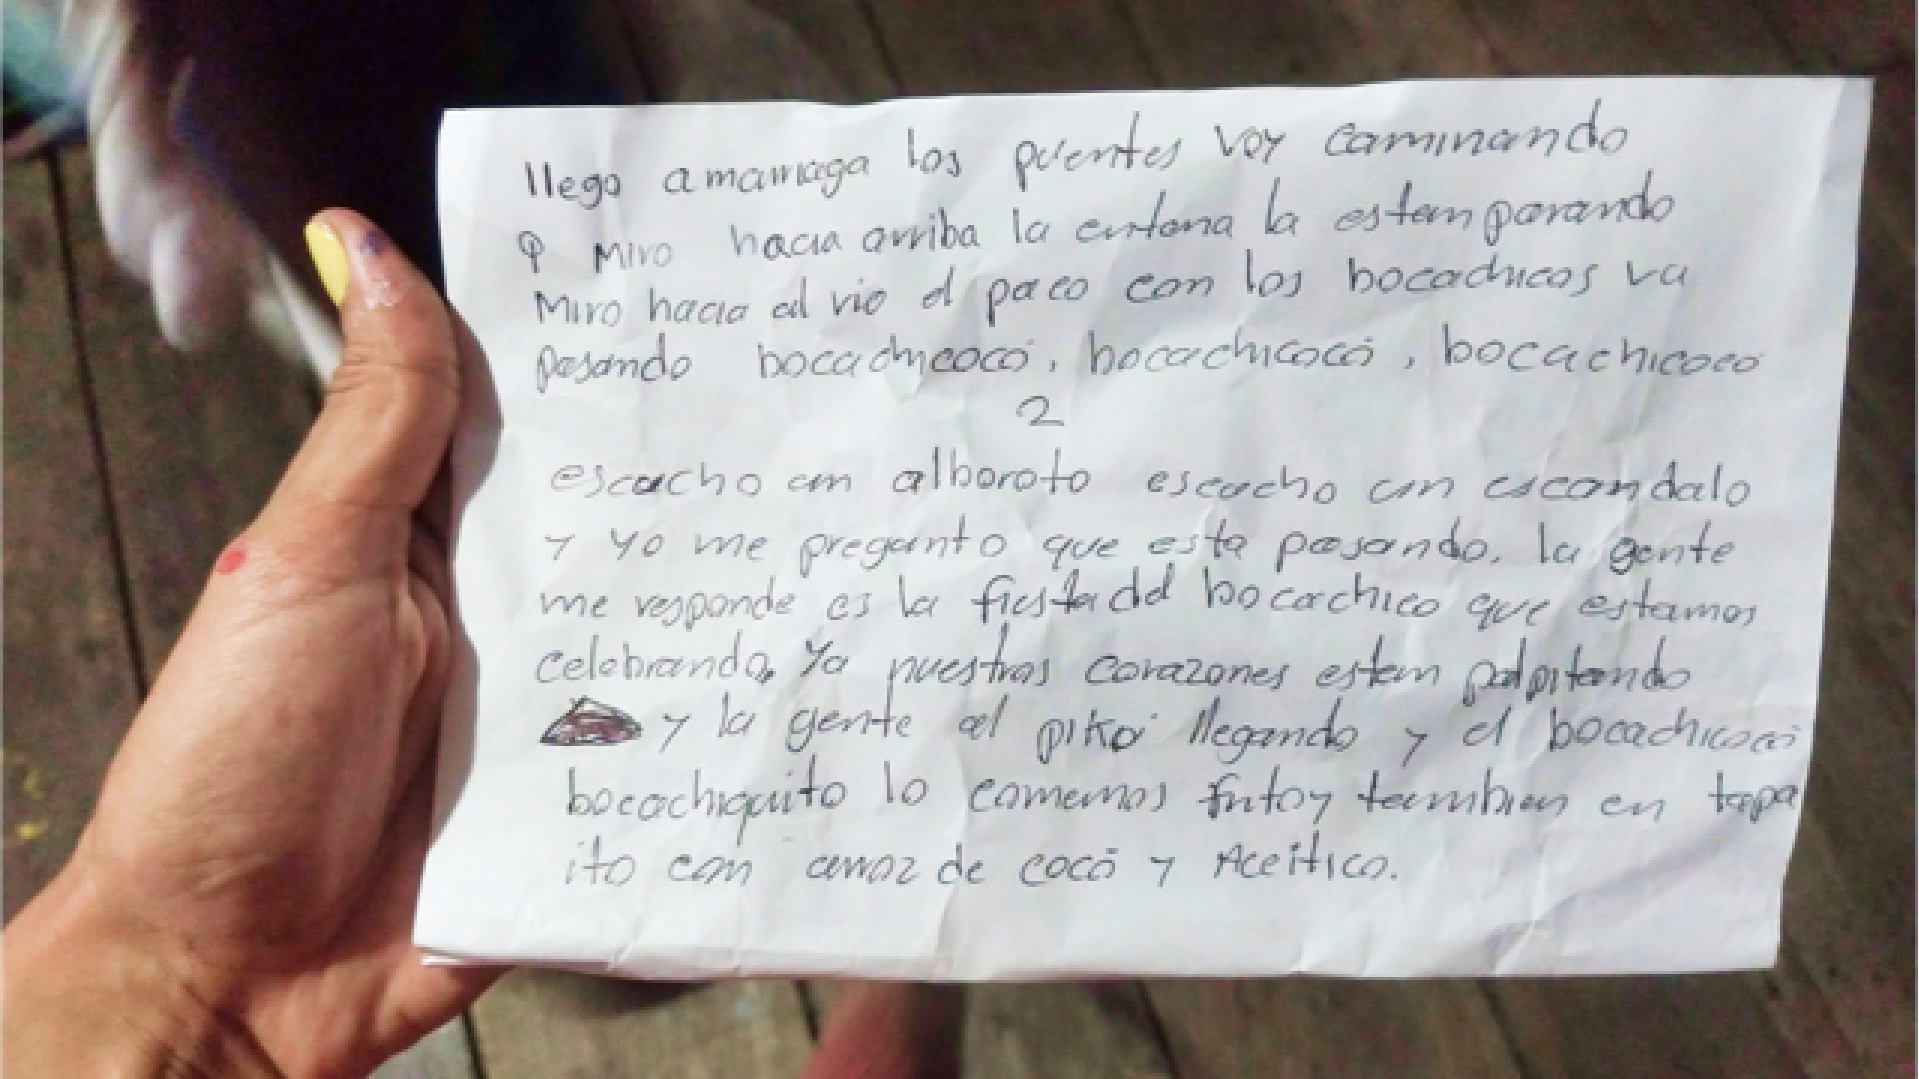 llego a marriaga los puentes voy caminando
miro hacia arriba la entena la estan parando
Miro hacia el rio el paco con los bocachicos va
pasando bocachicocó, bocachicocó, bocachicoco
2
escucho un alboroto escucho un escandalo
y yo me pregunto que esta pasando. la gente
me responde es la fiesta del bocachico que estamos
celebrando, Ya nuestros corazones estan palpitando
y la gente al piko llegando y el bocachicocó
bocachiquito lo comemos frito y tambien en tapa
ito con arroz de cocó y Aceitico.